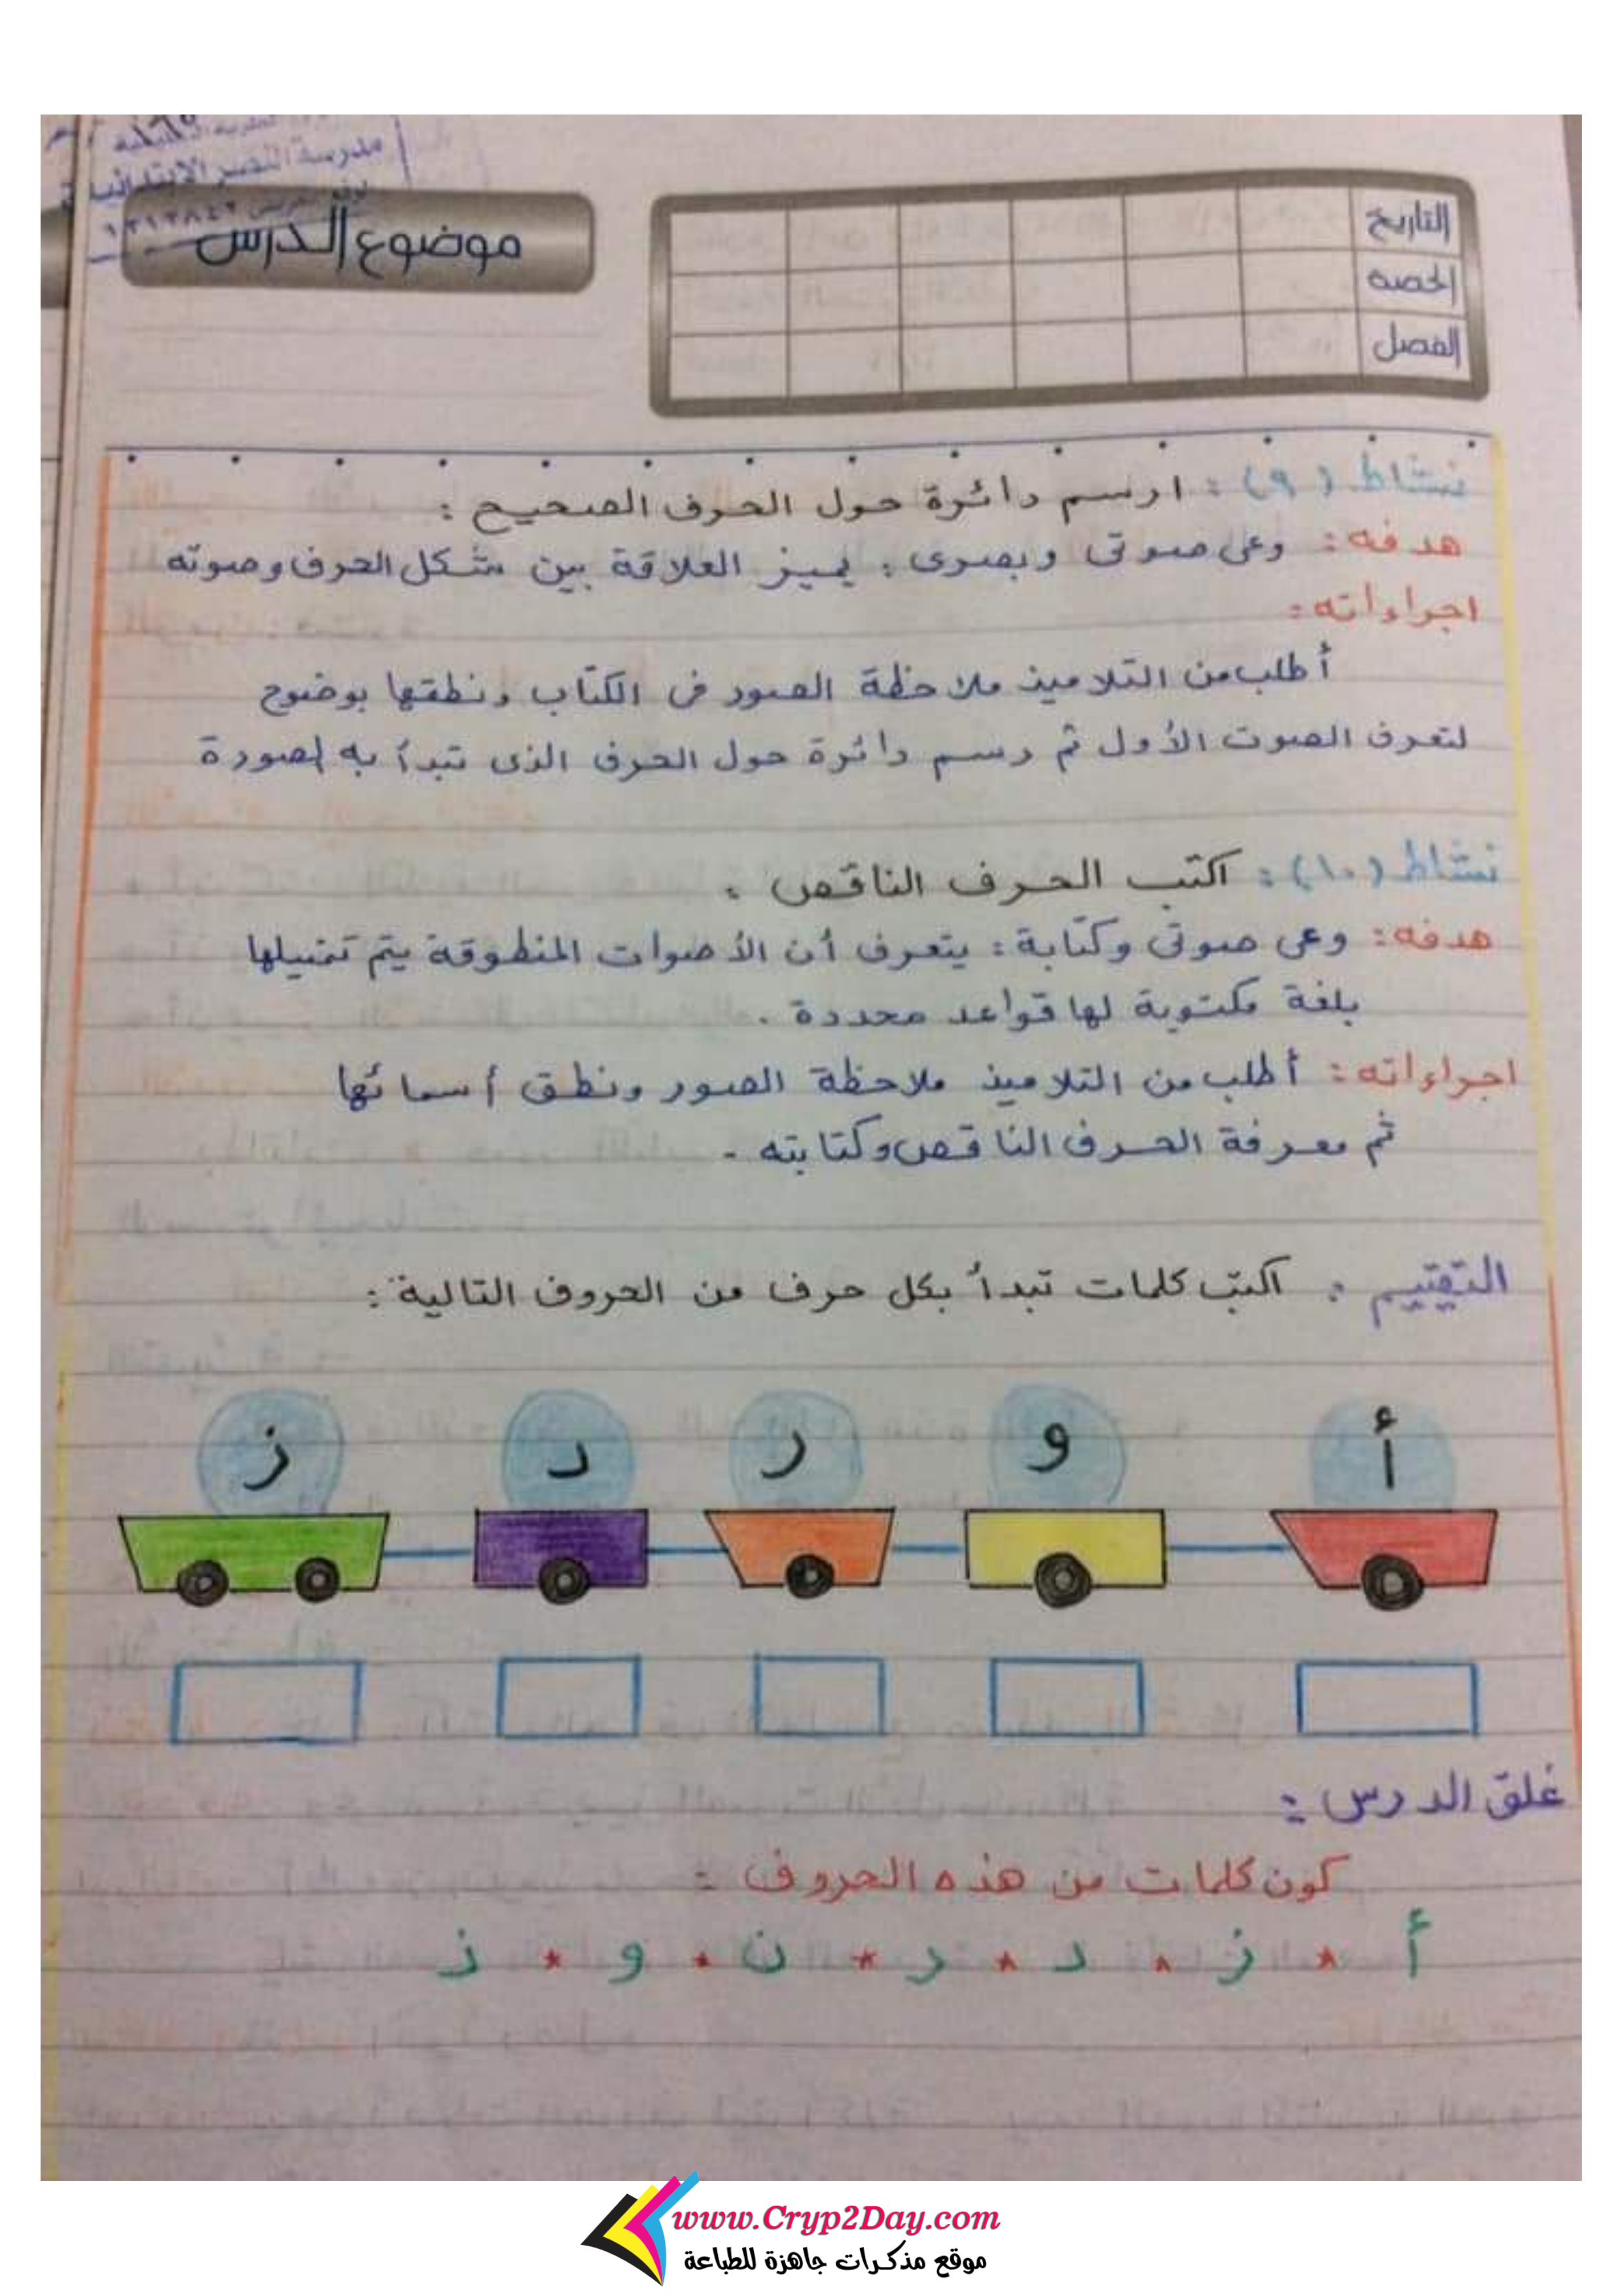 مدرسة النصر الابتدائية
موضوع الدرس
التاريخ
الحصة
الفصل
نشاط (٩) : ارسم دائرة حول الحرف الصحيح :
هدفه : وعى صوتى وبصرى : يميز العلاقة بين شكل الحرف وصوته
اجراءاته :
أطلب من التلاميذ ملاحظة الصور فى الكتاب ونطقها بوضوح
لتعرف الصوت الأول ثم رسم دائرة حول الحرف الذى تبدأ به الصورة
نشاط (١٠) : اكتب الحرف الناقص :
هدفه : وعى صوتى وكتابة : يتعرف أن الأصوات المنطوقة يتم تمثيلها
بلغة مكتوبة لها قواعد محددة .
اجراءاته : أطلب من التلاميذ ملاحظة الصور ونطق أسمائها
ثم معرفة الحرف الناقص وكتابته .
التقييم : اكتب كلمات تبدأ بكل حرف من الحروف التالية :
أ و ر د ز
غلق الدرس :
كون كلمات من هذه الحروف :
أ * ز * د * ر * ن * و * ز
www.Cryp2Day.com
موقع مذكرات جاهزة للطباعة